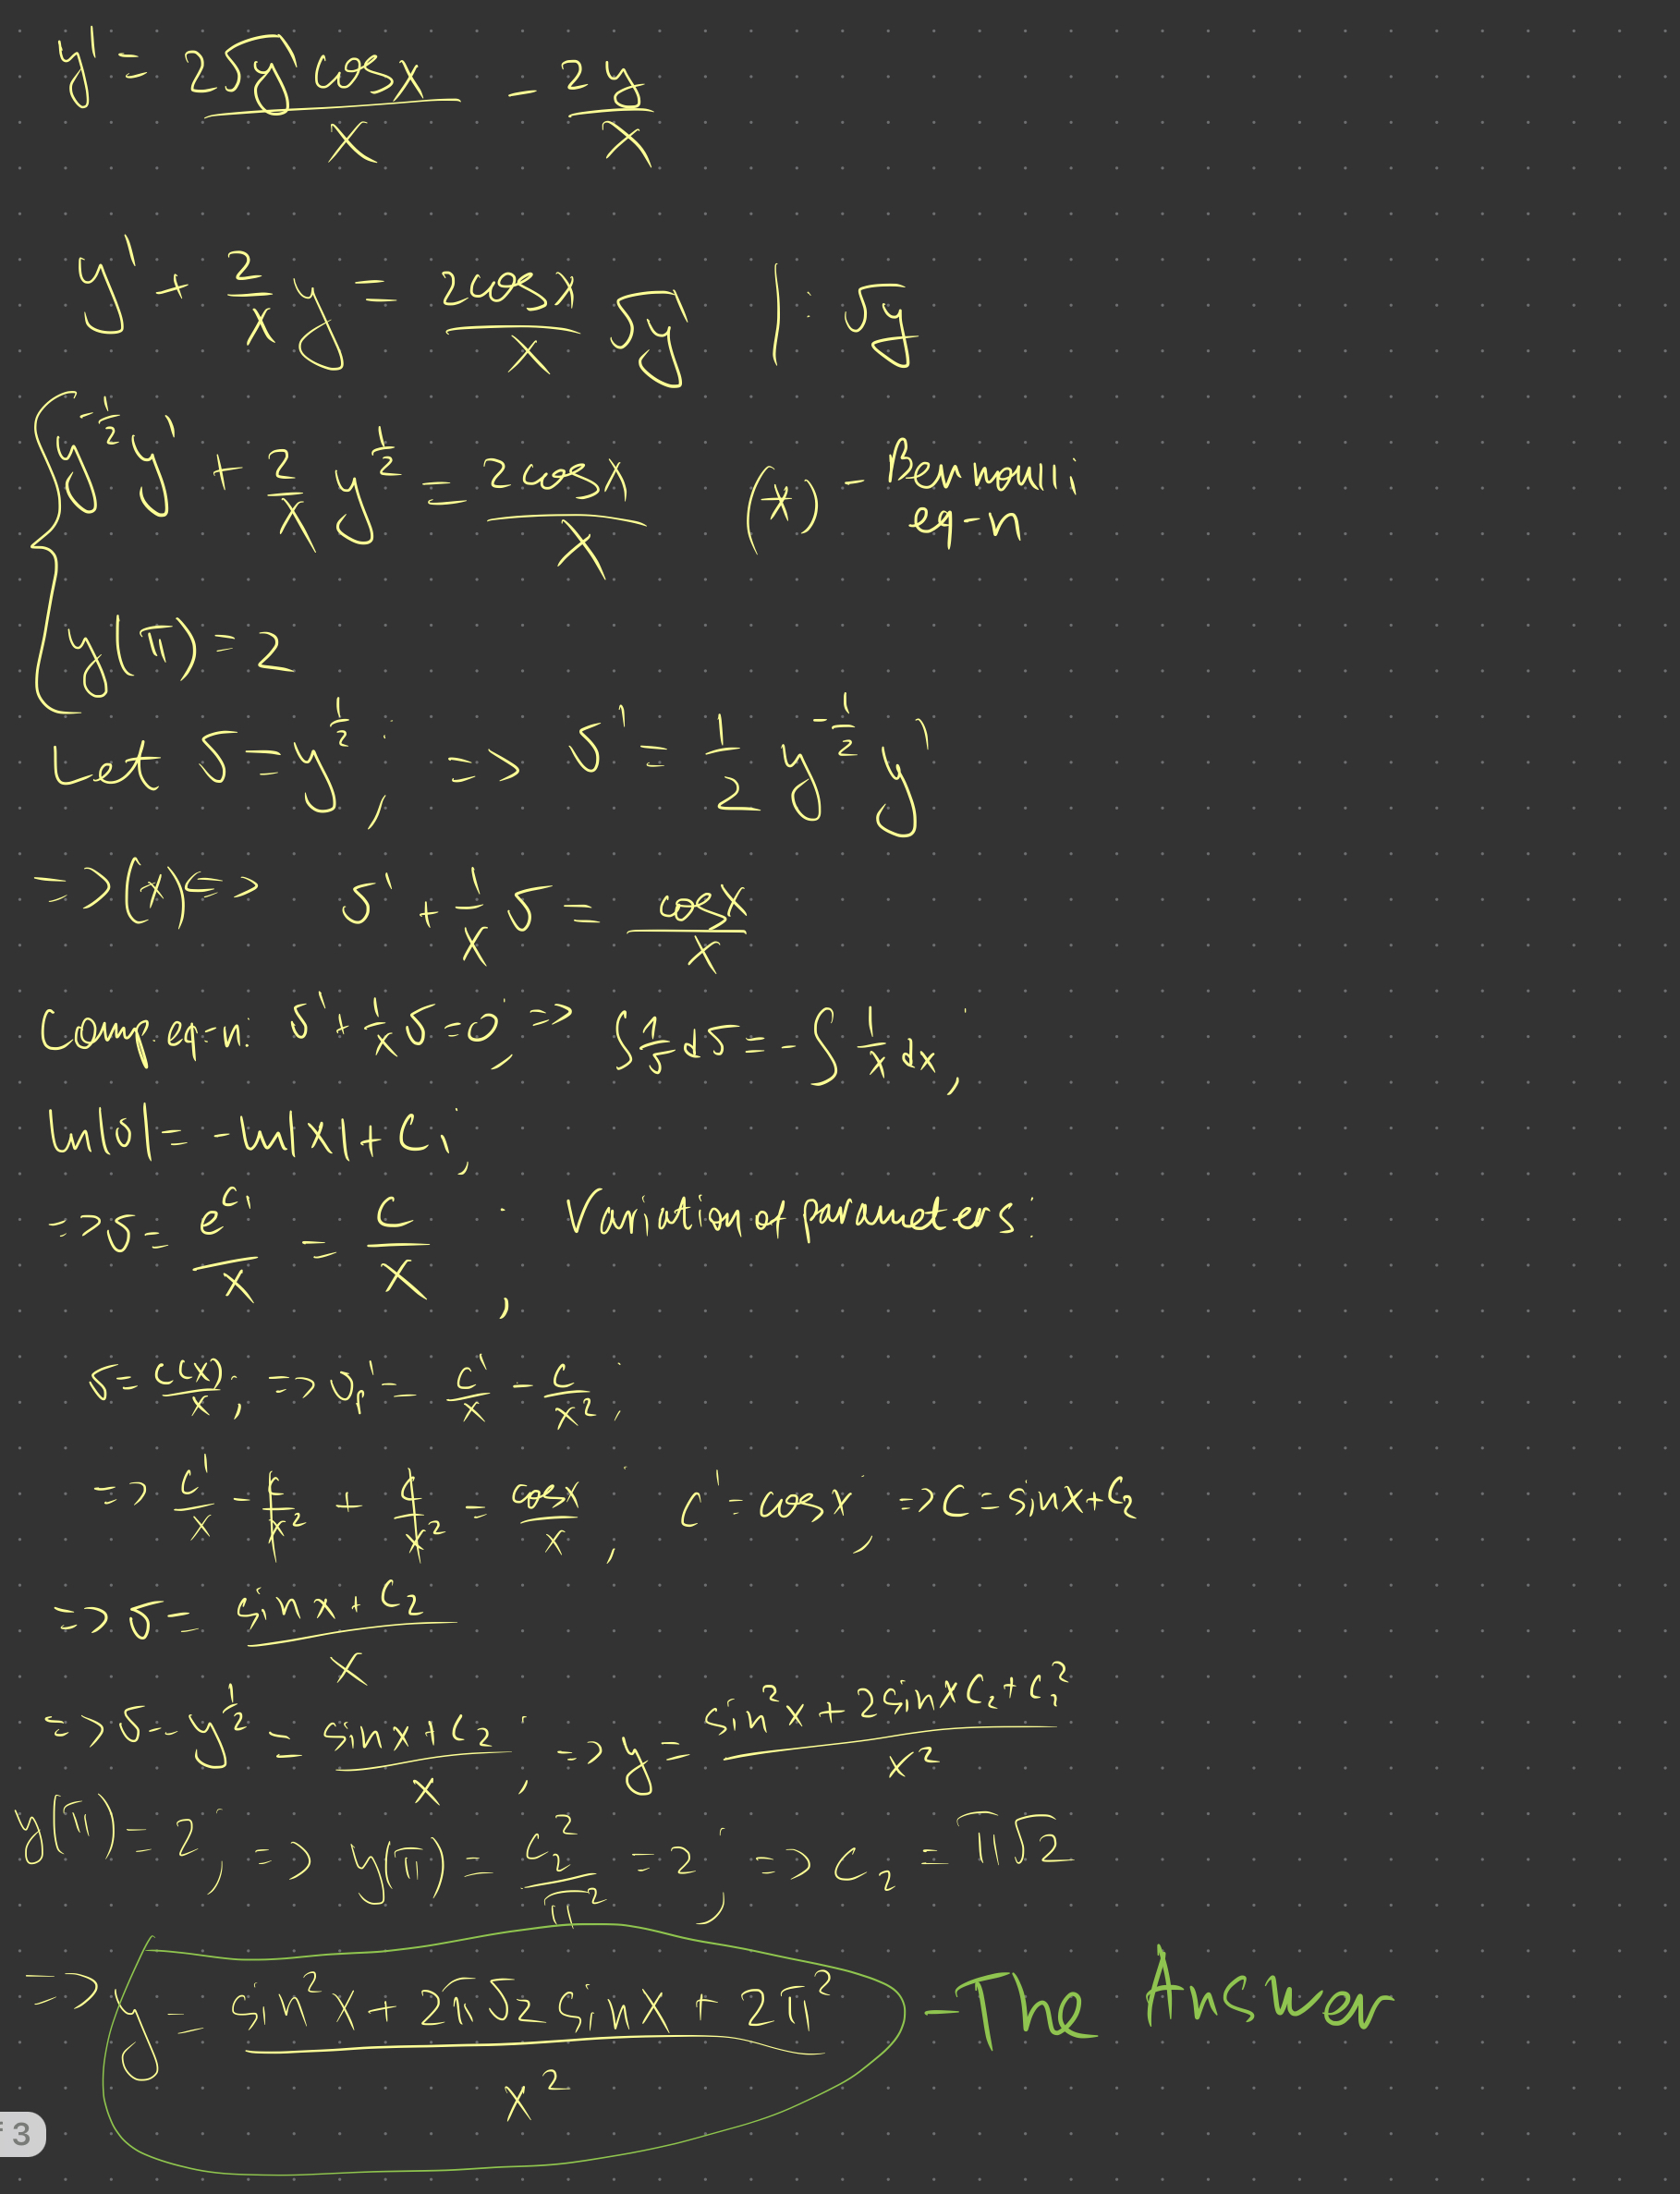 y' = 2√y cosx / x - 2y / x
y' + 2/x y = 2cosx / x √y | : √y
{ y^(-1/2) y' + 2/x y^(1/2) = 2cosx / x (*) - Bernoulli
eq-n
y(π) = 2
Let υ = y^(1/2); => υ' = 1/2 y^(-1/2) y'
=> (*) <=> υ' + 1/x υ = cosx / x
Comp. eq-n: υ' + 1/x υ = 0; => ∫ 1/υ dυ = - ∫ 1/x dx;
ln|υ| = -ln|x| + C₁;
=> υ = e^(C₁) / x = C / x; Variation of parameters:
υ = C(x) / x; => υp' = C' / x - C / x²;
=> C' / x - C / x² + C / x² = cosx / x; C' = cosx; => C = sinx + C₂
=> υ = sinx + C₂ / x
=> υ = y^(1/2) = sinx + C₂ / x; => y = sin²x + 2sinx C₂ + C₂² / x²
y(π) = 2; => y(π) = C₂² / π² = 2; => C₂ = π√2
=> y = sin²x + 2π√2 sinx + 2π² / x² - The Answer
3